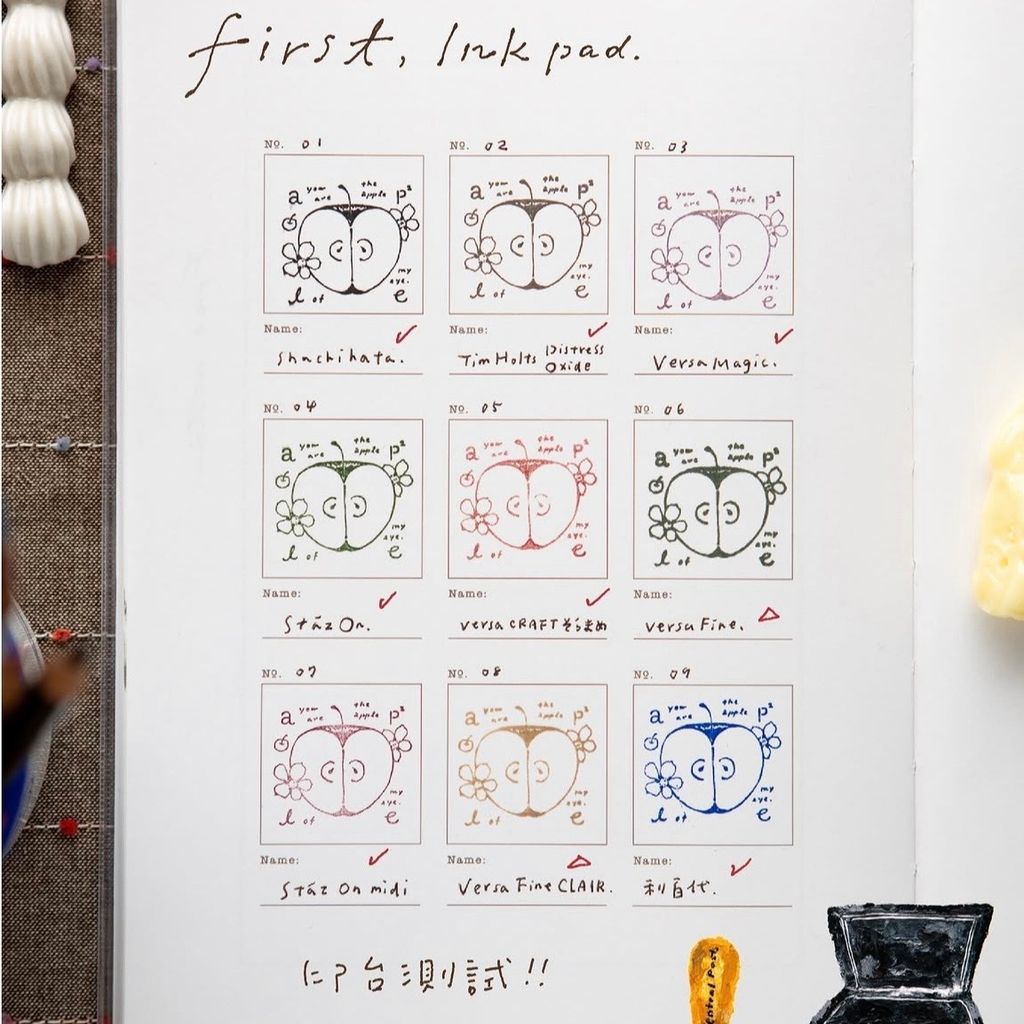 first, Ink pad.
No. 01
a you are the apple p²
l of my eye. e
Name: ✓
Shachihata.
No. 02
a you are the apple p²
l of my eye. e
Name: ✓
Tim Holts Distress Oxide
No. 03
a you are the apple p²
l of my eye. e
Name: ✓
Versa Magic.
No. 04
a you are the apple p²
l of my eye. e
Name: ✓
Stāz On.
No. 05
a you are the apple p²
l of my eye. e
Name: ✓
Versa CRAFT そらまめ
No. 06
a you are the apple p²
l of my eye. e
Name: △
Versa Fine.
No. 07
a you are the apple p²
l of my eye. e
Name: ✓
Stāz On midi
No. 08
a you are the apple p²
l of my eye. e
Name: △
Versa Fine CLAIR.
No. 09
a you are the apple p²
l of my eye. e
Name: ✓
利百代.
印台測試!!
Central Post